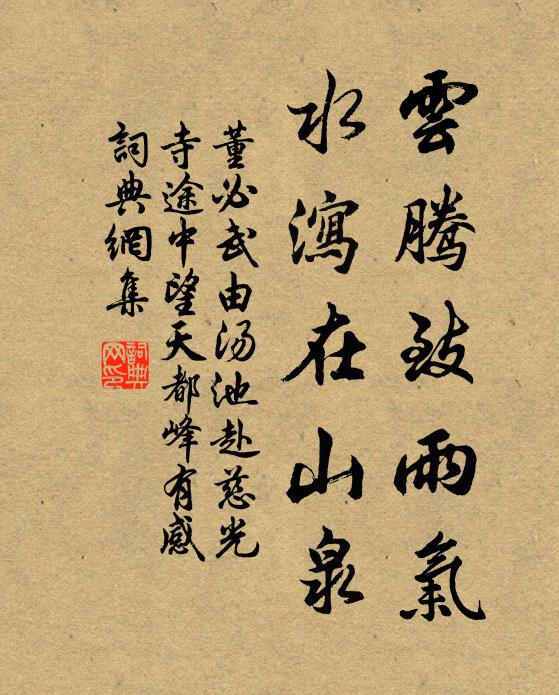 雲騰致雨氣
水瀉在山泉
董必武由湯池赴慈光
寺途中望天都峰有感
詞典網集
詞典
网印